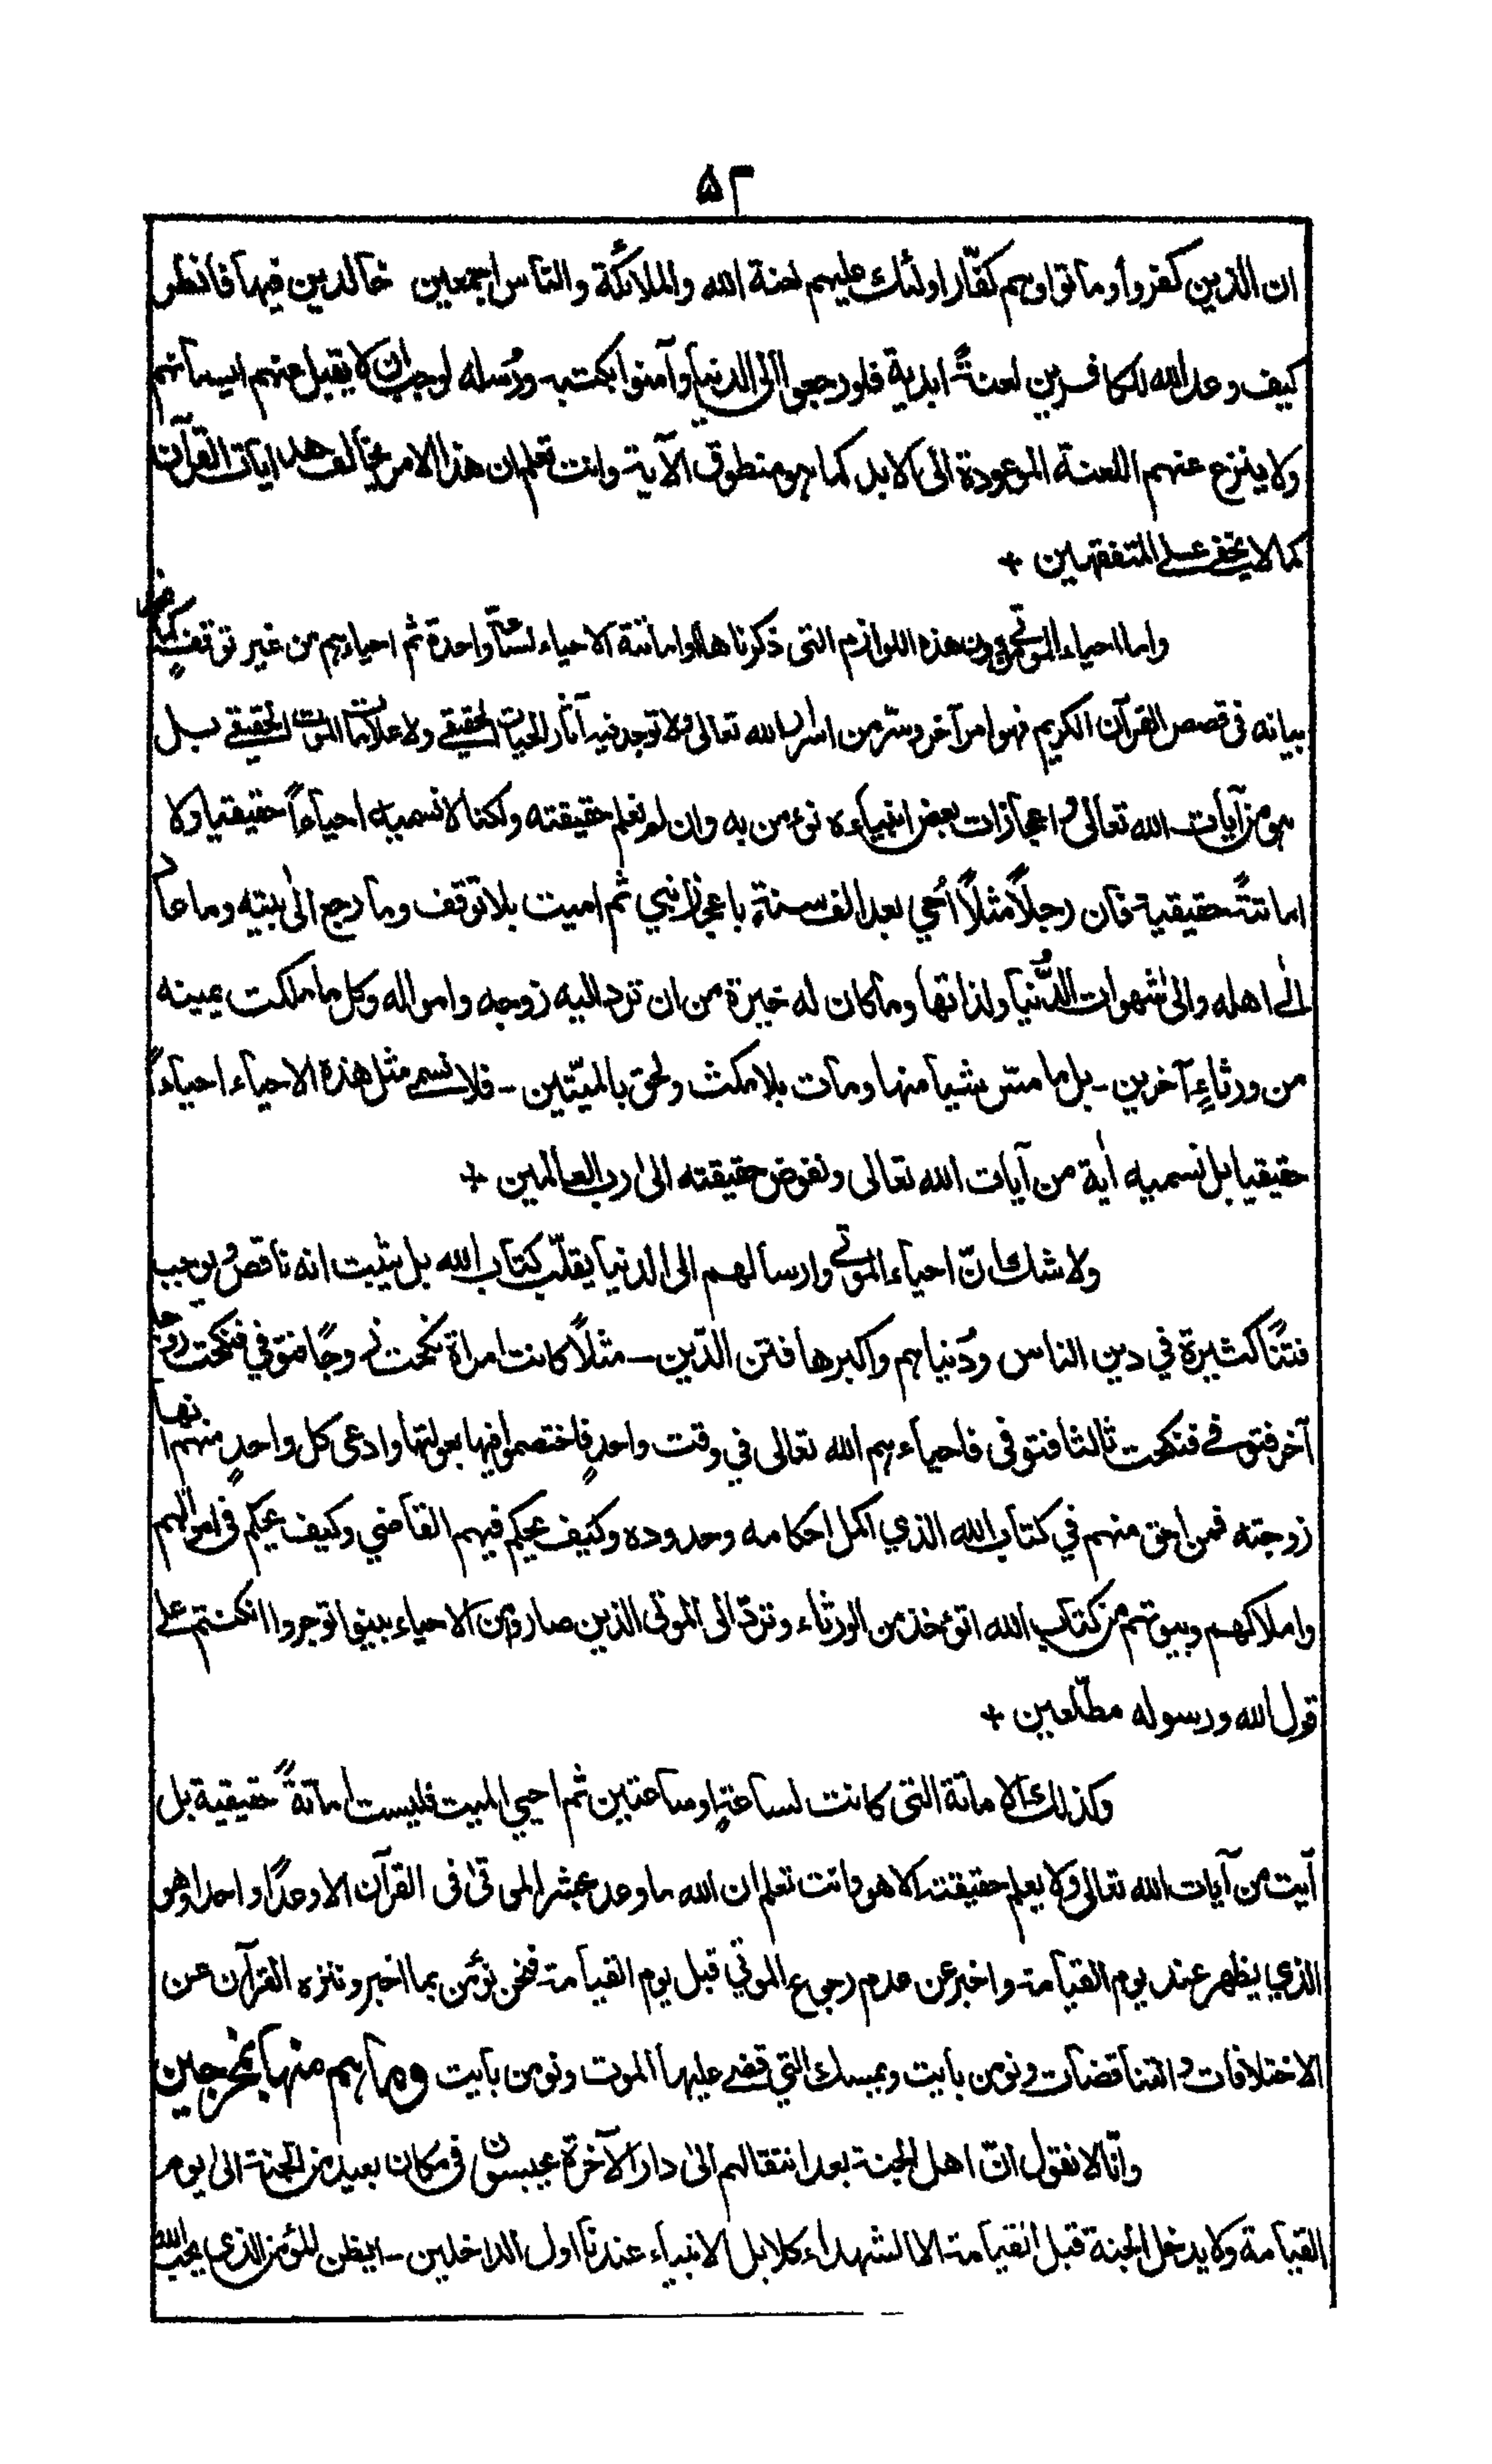 ۵۲
ان الذين كفروا وماتوا وهم كفّار اولئك عليهم لعنة الله والملائكة والناس اجمعين خالدين فيها فانظر
كيف وعد الله للكافرين لعنةً ابدية فلو رجعوا الى الدنيا وآمنوا بكتبه ورُسله لوجب ان لا يقبل عنهم ايمانهم
ولا ينزع عنهم اللعنة الموعودة الى الابد كما هو منطوق الآية وانت تعلم ان هذا الامر يخالف هدايات القرآن
كما لا يخفى على المتفقهين +
واما احياء الموتى من دون هذه اللوازم التى ذكرناها او اماتة الاحياء لساعة واحدة ثم احياءهم من غير توقف كما نجد
بيانه فى قصص القرآن الكريم فهو امر آخر وسر من اسرار الله تعالى ولا توجد فيه آثار الحيات الحقيقى ولا علامات الموت الحقيقى بل
هو من آيات الله تعالى واعجازات بعض انبياءه نؤمن به وان لم نعلم حقيقته ولكنا لا نسميه احياءً حقيقيا ولا
اماتةً حقيقية فان رجلاً مثلاً أحيي بعد الف سنة باعجاز نبي ثم اميت بلا توقف وما رجع الى بيته وما عاد
الى اهله والى شهوات الدُّنيا ولذاتها وما كان له خيرة من ان ترد اليه زوجه وامواله وكل ما ملكت يمينه
من ورثاءٍ آخرين - بل ما مسّ شيئا منها ومات بلا مكث ولحق بالميّتين - فلا نسمى مثل هذه الاحياء احياءً
حقيقيا بل نسميه أية من آيات الله تعالى ونفوض حقيقته الى رب العالمين +
ولا شك انّ احياء الموتى وارسالهم الى الدنيا يقلّب كتاب الله بل يثبت انه ناقص ويوجب
فتنًا كثيرة في دين الناس ودُنياهم واكبرها فتن الدّين - مثلاً كانت امراة نكحت زوجًا فتوفي فنكحت زوجا
آخر فتوفى فنكحت ثالثا فتوفى فاحياءهم الله تعالى في وقت واحدٍ فاختصموا فيها بعولتها وادعى كل واحدٍ منهم انها
زوجته فمن احق منهم في كتاب الله الذي اكمل احكامه وحدوده وكيف يحكم فيهم القاضي وكيف يحكم فى اموالهم
واملاكهم وبيوتهم من كتاب الله اتؤخذ من الورثاء وتردّ الى الموتى الذين صاروا من الاحياء بينوا توجروا ان كنتم على
قول الله ورسوله مطّلعين +
وكذلك الاماتة التى كانت لساعةٍ او ساعتين ثم احيي الميت فليست اماتةً حقيقية بل
آيت من آيات الله تعالى ولا يعلم حقيقته الا هو وانت تعلم ان الله ما وعد بحشر الموتى فى القرآن الا وعدًا واحدا وهو
الذي يظهر عند يوم القيامة واخبر عن عدم رجوع الموتي قبل يوم القيامة فنحن نؤمن بما اخبر وننزه القرآن عن
الاختلافات والتناقضات ونومن بآيت ويمسك التي قضى عليها الموت ونومن بآيت وما هم منها بمخرجين
وانّا لا نقول انّ اهل الجنة بعد انتقالهم الى دار الآخرة يحبسون فى مكان بعيد من الجنة الى يوم
القيامة ولا يدخل الجنة قبل القيامة الا الشهداء كلا بل الانبياء عندنا اول الداخلين - ايظن المؤمن الذي يحب الله